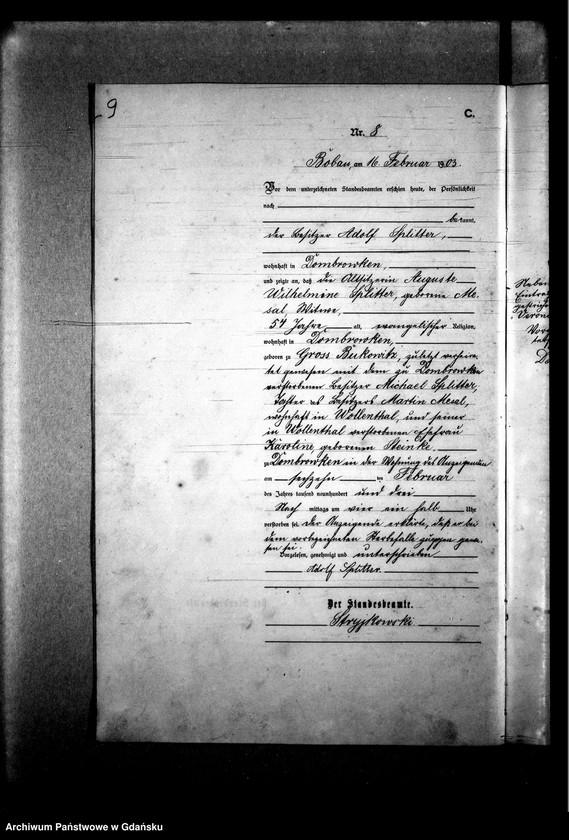 9
C.
Nr. 8
Bobau, am 16. Februar 1903.
Vor dem unterzeichneten Standesbeamten erschien heute, der Persönlichkeit
nach
bekannt,
der Besitzer Adolf Splitter,
wohnhaft in Dombrowken,
und zeigte an, daß die Altsitzerin Auguste
Wilhelmine Splitter, geborene Me-
sal, Witwe,
54 Jahre alt, evangelischer Religion,
wohnhaft in Dombrowken,
geboren zu Gross Bukowitz, zuletzt verheira-
tet gewesen mit dem zu Dombrowken
verstorbenen Besitzer Michael Splitter,
Tochter des Besitzers Martin Mesal,
wohnhaft in Wollenthal, und seiner
in Wollenthal verstorbenen Ehefrau
Karoline, geborenen Steinke
zu Dombrowken in der Wohnung des Anzeigenden
am sechzehn ten Februar
des Jahres tausend neunhundert und drei
Nach mittags um vier ein halb Uhr
verstorben sei. Der Anzeigende erklärte, daß er bei
dem vorbezeichneten Sterbefalle zugegen gewe-
sen sei.
Vorgelesen, genehmigt und unterschrieben
Adolf Splitter.
Der Standesbeamte.
Stryjkowski
Neben
Vor
Archiwum Państwowe w Gdańsku